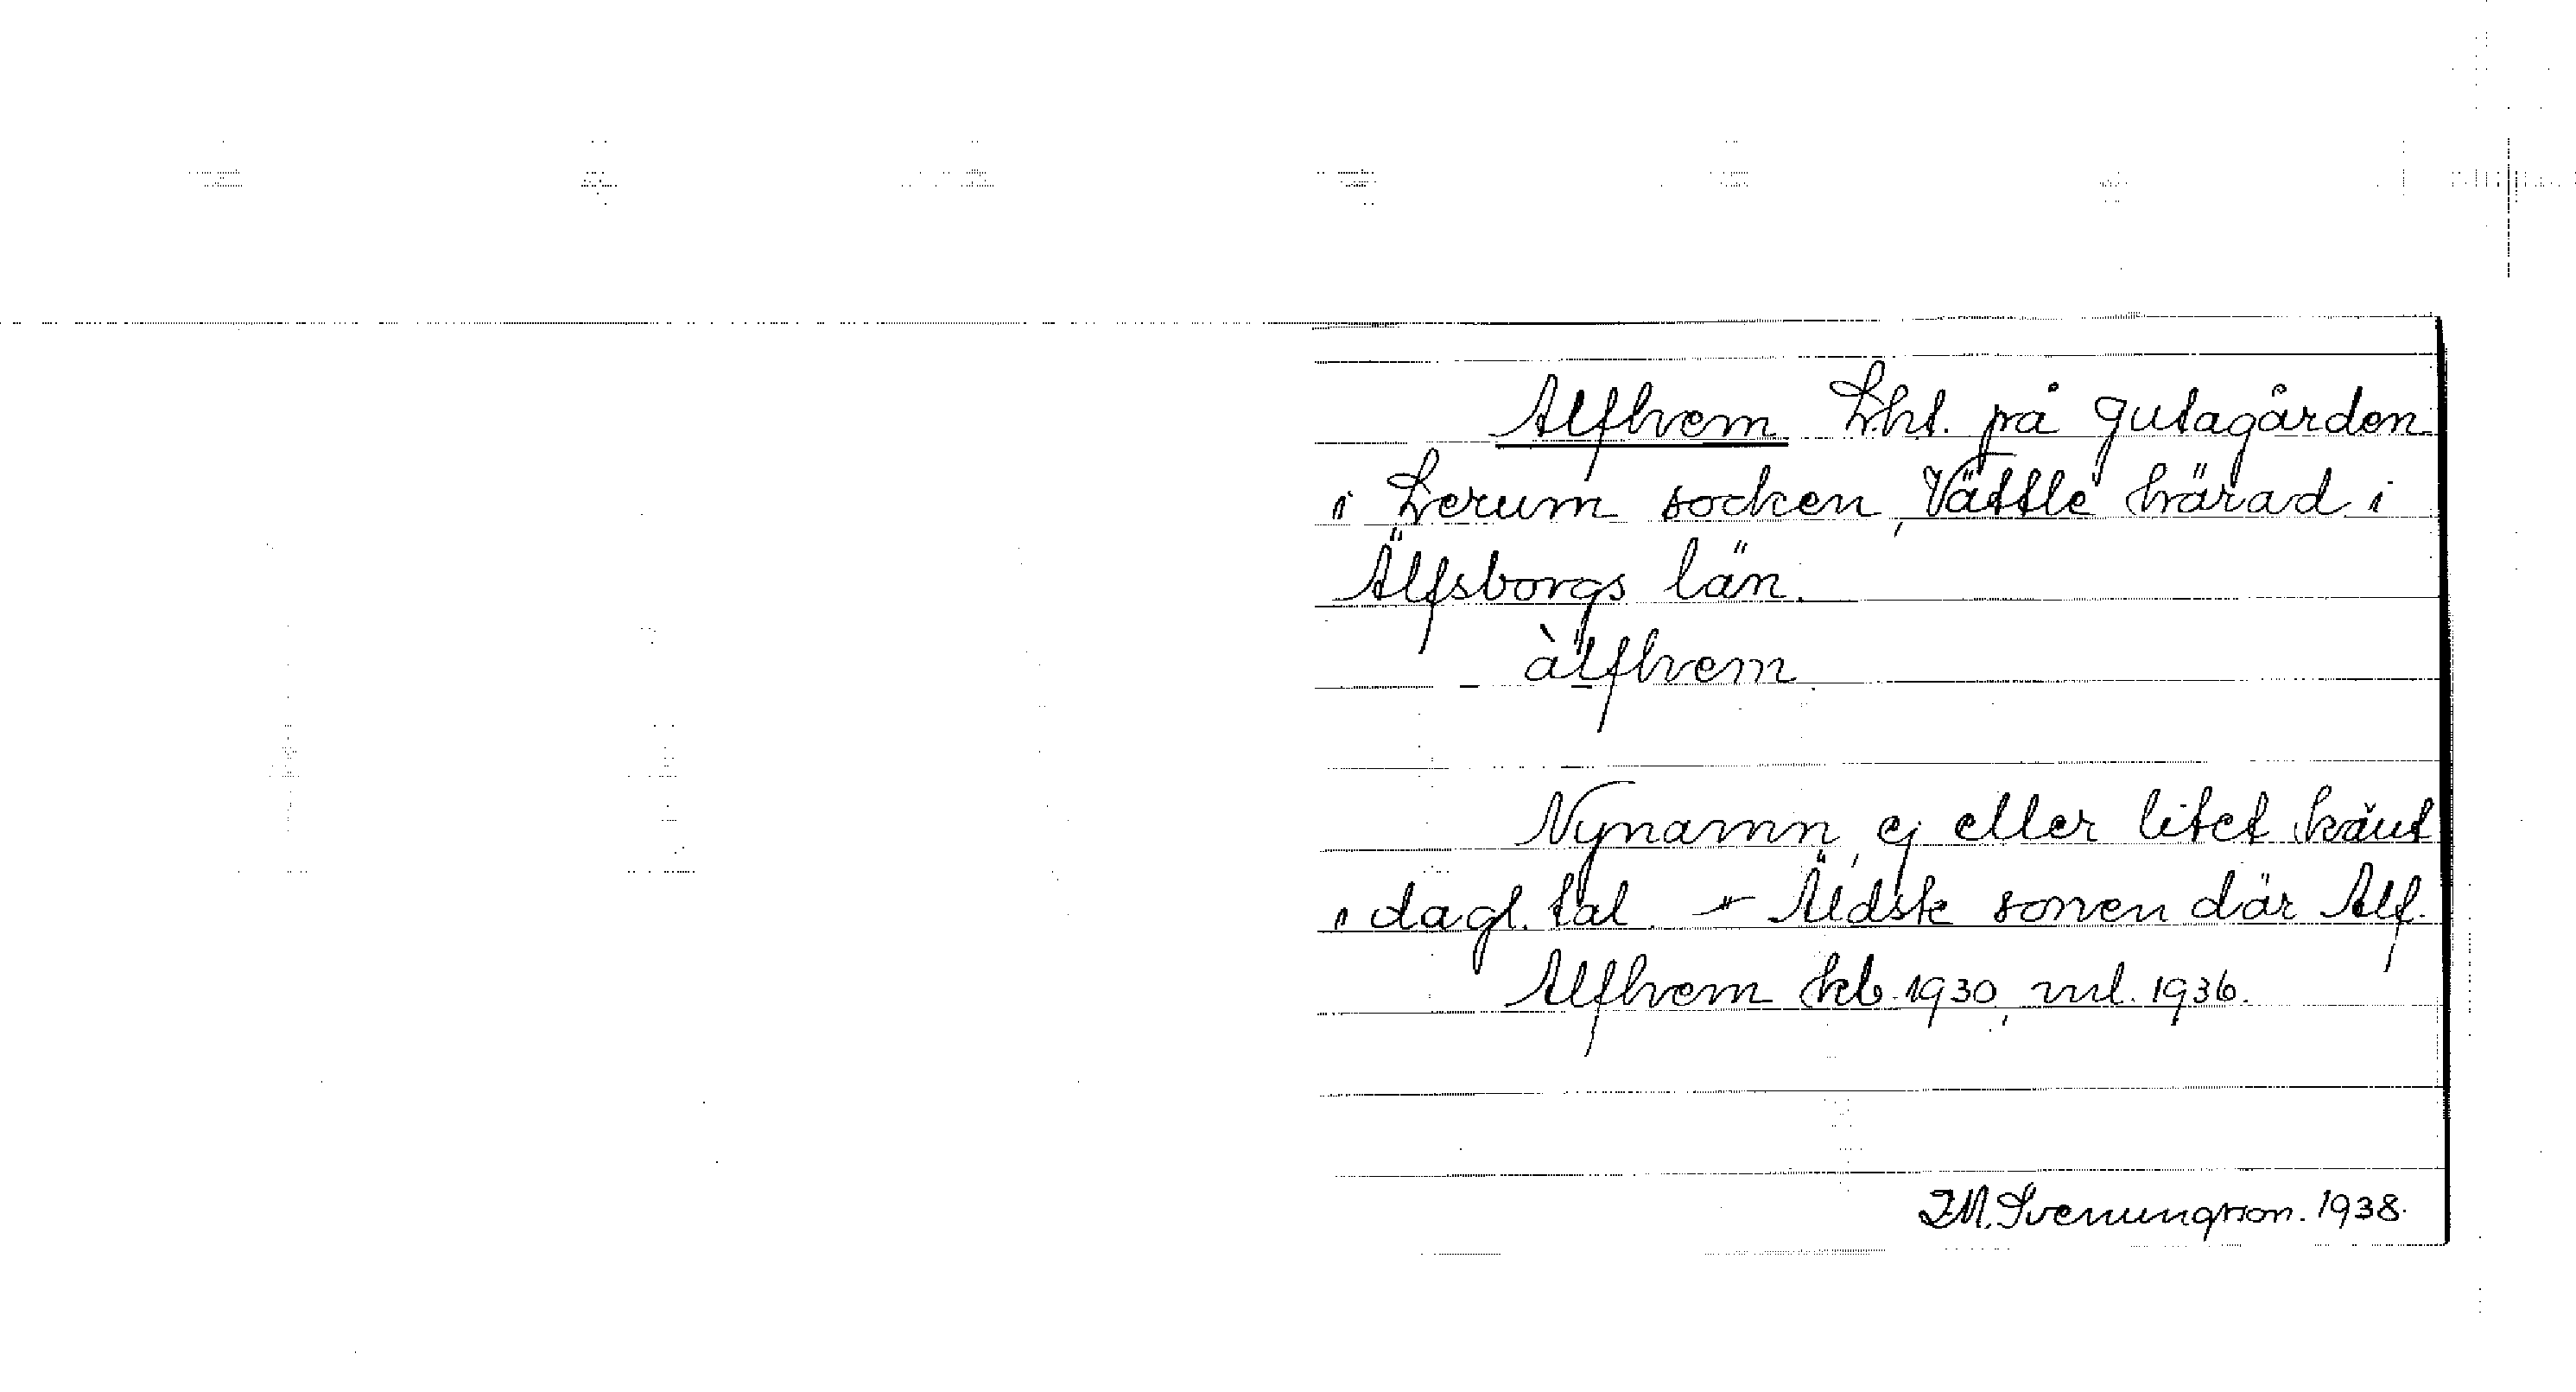 Alfhem Lht. på Gutagården
i Lerum socken, Vättle härad i
Älfsborgs län.
àlfhem
Nynamn, ej eller litet känt
i dagl. tal. - Äldste sonen där Alf.
Alfhem kb. 1930, ml. 1936.
I.M. Svenungson. 1938.